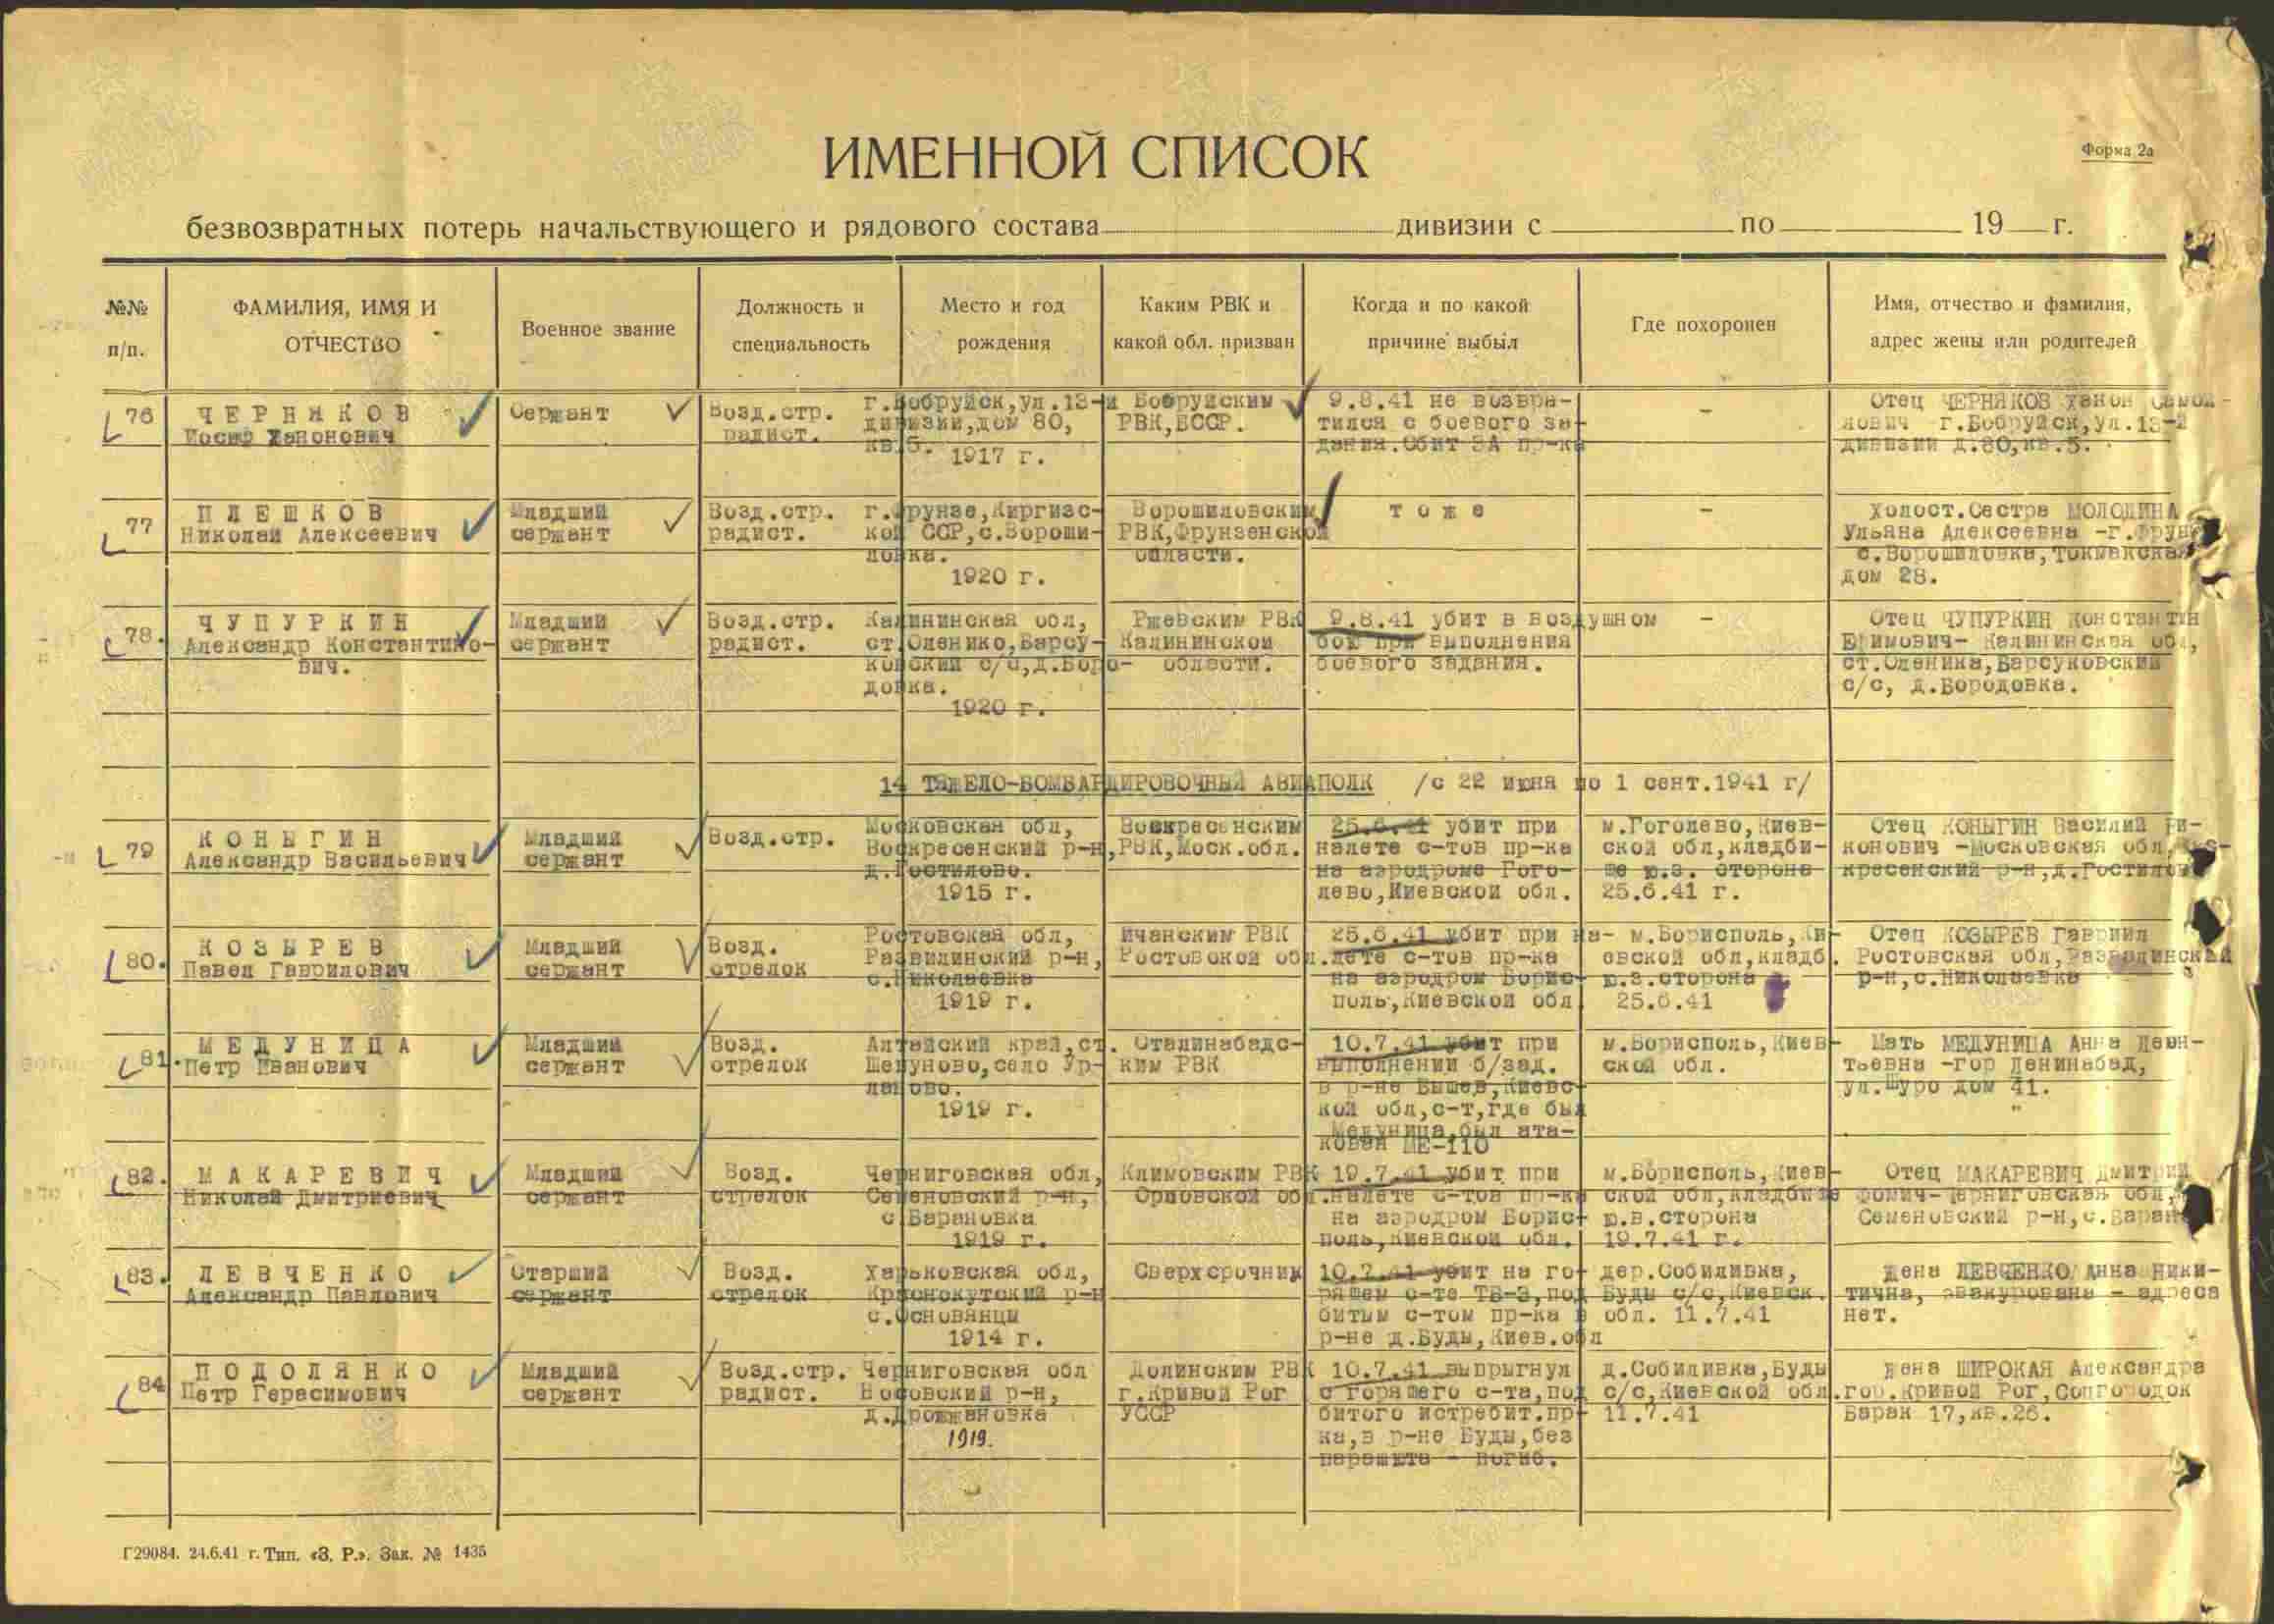 ИМЕННОЙ СПИСОК
Форма 2а
безвозвратных потерь начальствующего и рядового состава дивизии с по 19 г.
№№ п/п.
ФАМИЛИЯ, ИМЯ И ОТЧЕСТВО
Военное звание
Должность и специальность
Место и год рождения
Каким РВК и какой обл. призван
Когда и по какой причине выбыл
Где похоронен
Имя, отчество и фамилия, адрес жены или родителей
76
ЧЕРНЯКОВ
Иосиф Ханонович
Сержант
Возд.стр.
радист.
г.Бобруйск,ул.13-й
дивизии,дом 80,
кв.5.
1917 г.
Бобруйским
РВК,БССР.
9.8.41 не возвра-
тился с боевого за-
дания.Сбит ЗА пр-ка
-
Отец ЧЕРНЯКОВ Ханон Самой-
лович -г.Бобруйск,ул.13-й
дивизии д.80,кв.5.
77
ПЛЕШКОВ
Николай Алексеевич
Младший
сержант
Возд.стр.
радист.
г.Фрунзе,Киргизс-
кой ССР,с.Вороши-
ловка.
1920 г.
Ворошиловским
РВК,Фрунзенской
области.
тоже
-
Холост.Сестра МОЛОДИНА
Ульяна Алексеевна -г.Фрунз
с.Ворошиловка,Токмакская
дом 28.
78.
ЧУПУРКИН
Александр Константино-
вич.
Младший
сержант
Возд.стр.
радист.
Калининская обл,
ст.Оленико,Барсу-
ковский с/с,д.Боро-
довка.
1920 г.
Ржевским РВК
Калининской
области.
9.8.41 убит в воздушном
бою при выполнения
боевого задания.
-
Отец ЧУПУРКИН Константин
Ефимович- Калининская обл,
ст.Оленика,Барсуковский
с/с, д.Бородовка.
14 ТЯЖЕЛО-БОМБАРДИРОВОЧНЫЙ АВИАПОЛК /с 22 июня по 1 сент.1941 г/
79
КОНЫГИН
Александр Васильевич
Младший
сержант
Возд.стр.
Московская обл,
Воскресенский р-н,
д.Гостилово.
1915 г.
Воскресенским
РВК,Моск.обл.
25.6.41 убит при
налете с-тов пр-ка
на аэродроме Гого-
лево,Киевской обл.
м.Гоголево,Киев-
ской обл,кладби-
ще ю.з. сторона
25.6.41 г.
Отец КОНЫГИН Василий Ти-
конович -Московская обл,Вос-
кресенский р-н,д.Гостилов
80.
КОЗЫРЕВ
Павел Гаврилович
Младший
сержант
Возд.
стрелок
Ростовская обл,
Развилинский р-н,
с.Николаевка
1919 г.
ичанским РВК
Ростовской обл.
25.6.41 убит при на-
лете с-тов пр-ка
на аэродром Борис-
поль,Киевской обл
м.Борисполь,Ки-
евской обл,кладб.
ю.з.сторона
25.6.41
Отец КОЗЫРЕВ Гавриил
Ростовская обл,Развилинский
р-н,с.Николаевка
81.
МЕДУНИЦА
Петр Иванович
Младший
сержант
Возд.
стрелок
Алтайский край,ст.
Шелуново,село Ур-
ланово.
1919 г.
Сталинабадс-
ким РВК
10.7.41 убит при
выполнении б/зад.
в р-не Бышев,Киевс-
кой обл,с-т,где был
Медуница,был ата-
кован МЕ-110
м.Борисполь,Киев-
ской обл.
Мать МЕДУНИЦА Анна Леон-
тьевна -гор Ленинабад,
ул.Щуро дом 41.
82.
МАКАРЕВИЧ
Николай Дмитриевич
Младший
сержант
Возд.
стрелок
Черниговская обл,
Семеновский р-н,
с.Барановка
1919 г.
Климовским РВК
Орловской обл.
19.7.41 убит при
налете с-тов пр-ка
на аэродром Борис-
поль,Киевской обл.
м.Борисполь,Киев-
ской обл,кладбище
ю.в.сторона
19.7.41 г.
Отец МАКАРЕВИЧ Дмитрий
Фомич-Черниговская обл,
Семеновский р-н,с.Баран
83.
ЛЕВЧЕНКО
Александр Павлович
Старший
сержант
Возд.
стрелок
Харьковская обл,
Краснокутский р-н
с.Основянцы
1914 г.
Сверхсрочник
10.7.41 убит на го-
рящем с-те ТБ-3,под
битым с-том пр-ка в
р-не д.Буды,Киев.обл
дер.Собиливка,
Буды с/с,Киевск.
обл. 11.7.41
Жена ЛЕВЧЕНКО Анна Ники-
тична, эвакурована - адреса
нет.
84
ПОДОЛЯНКО
Петр Герасимович
Младший
сержант
Возд.стр.
радист.
Черниговская обл
Носовский р-н,
д.Дрожжановка
1919.
Долинским РВК
г.Кривой Рог
УССР
10.7.41 выпрыгнул
с горящего с-та,под
битого истребит.пр-
ка,в р-не Буды,без
парашюта - погиб.
д.Собиливка,Буды
с/с,Киевской обл.
11.7.41
Жена ШИРОКАЯ Александра
гор.Кривой Рог,Соцгородок
Барак 17,кв.26.
Г29084. 24.6.41 г. Тип. «З. Р.». Зак. № 1435